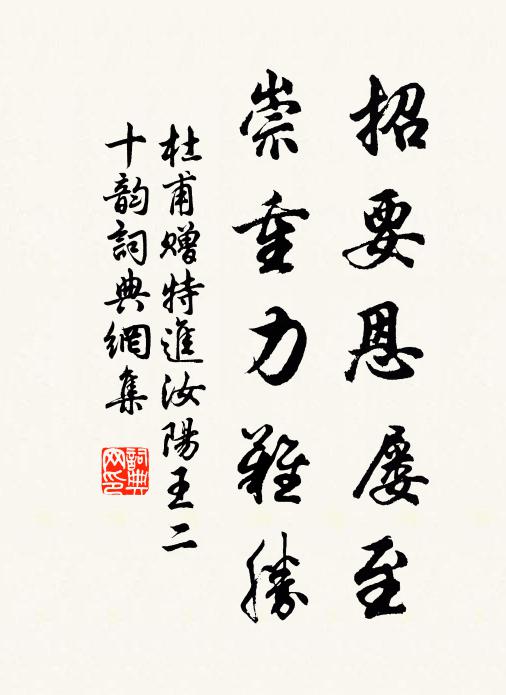 招要恩屡至
崇重力難勝
杜甫赠特進汝陽王二
十韵詞典網集
詞典
网印